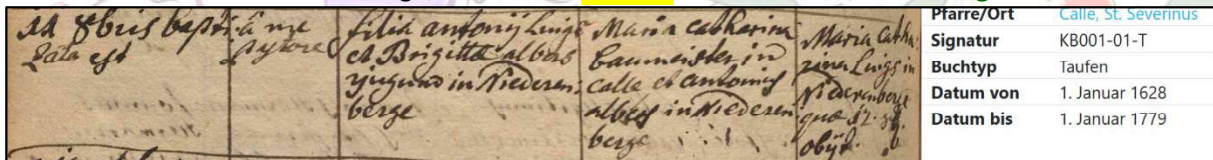 8bris bapti
zata est
à me
pastore
filia antonij Luigs
et Brigitta albers
in Niederen:
berge
Maria catharina
baumeister in
calle et antonius
albers in Niederen
berge
Maria Catha
rina Luigs in
Niederenberge
quae 12.
obijt.
Pfarre/Ort Calle, St. Severinus
Signatur KB001-01-T
Buchtyp Taufen
Datum von 1. Januar 1628
Datum bis 1. Januar 1779